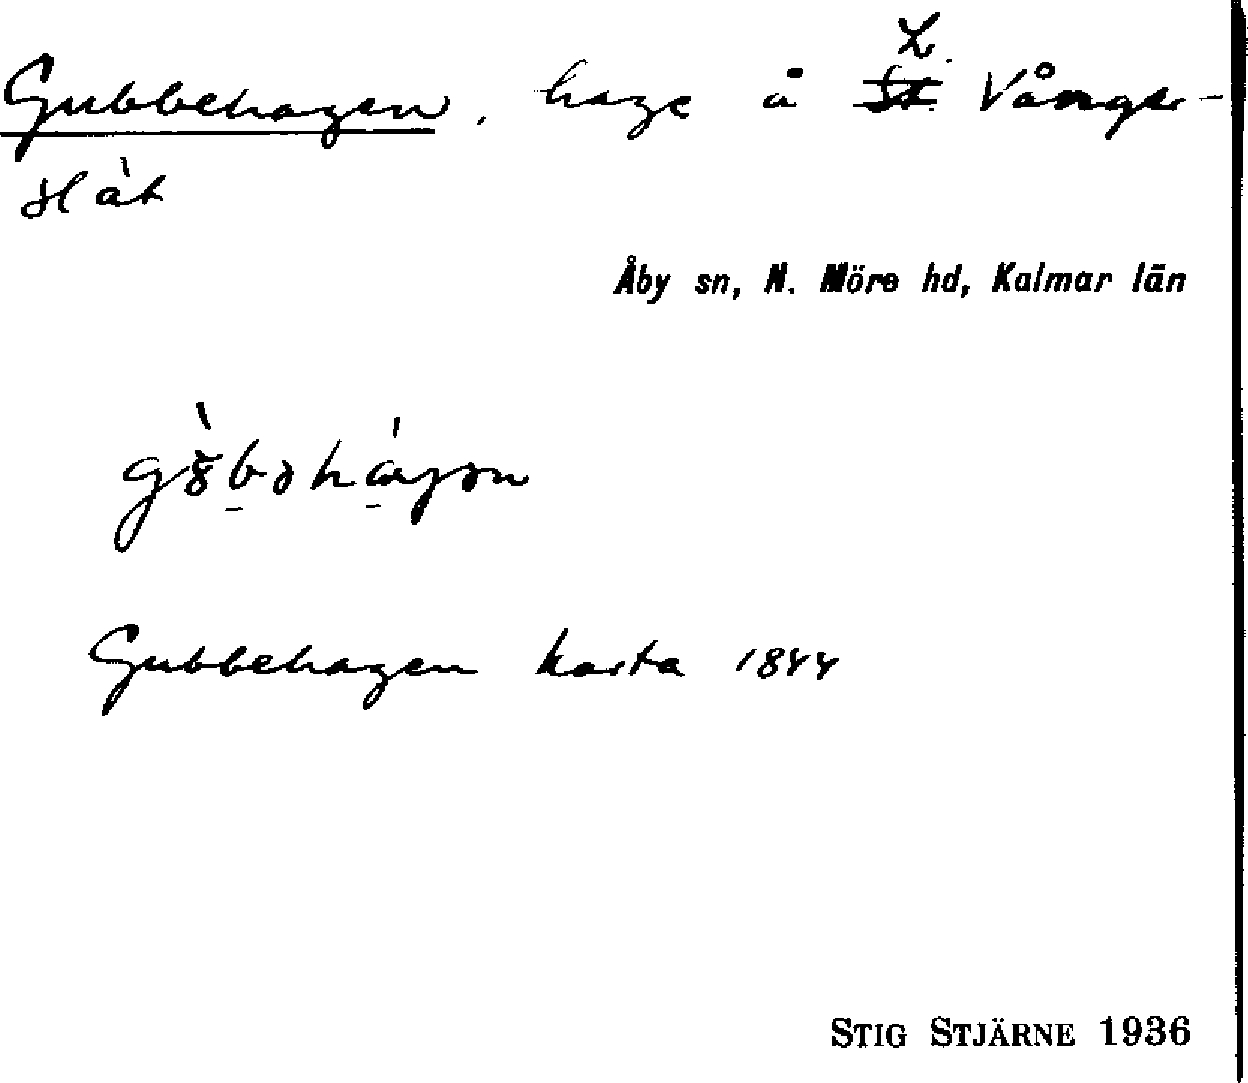 L.
Gubbehagen, hage å St. Vångs-
slät
Åby sn, N. Möre hd, Kalmar län
Gubbehagen karta 1844
STIG STJÄRNE 1936